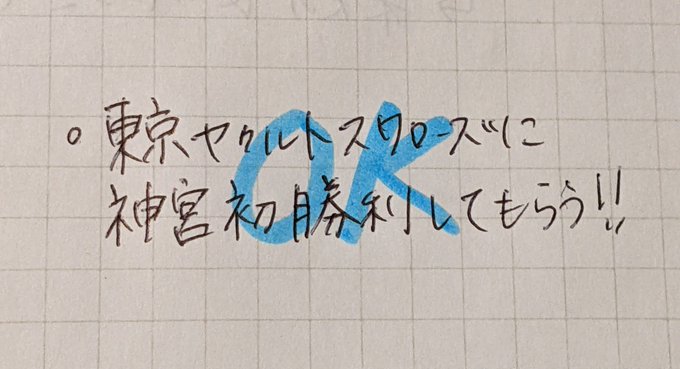 。東京ヤクルトスワローズに
神宮初勝利してもらう!!
OK